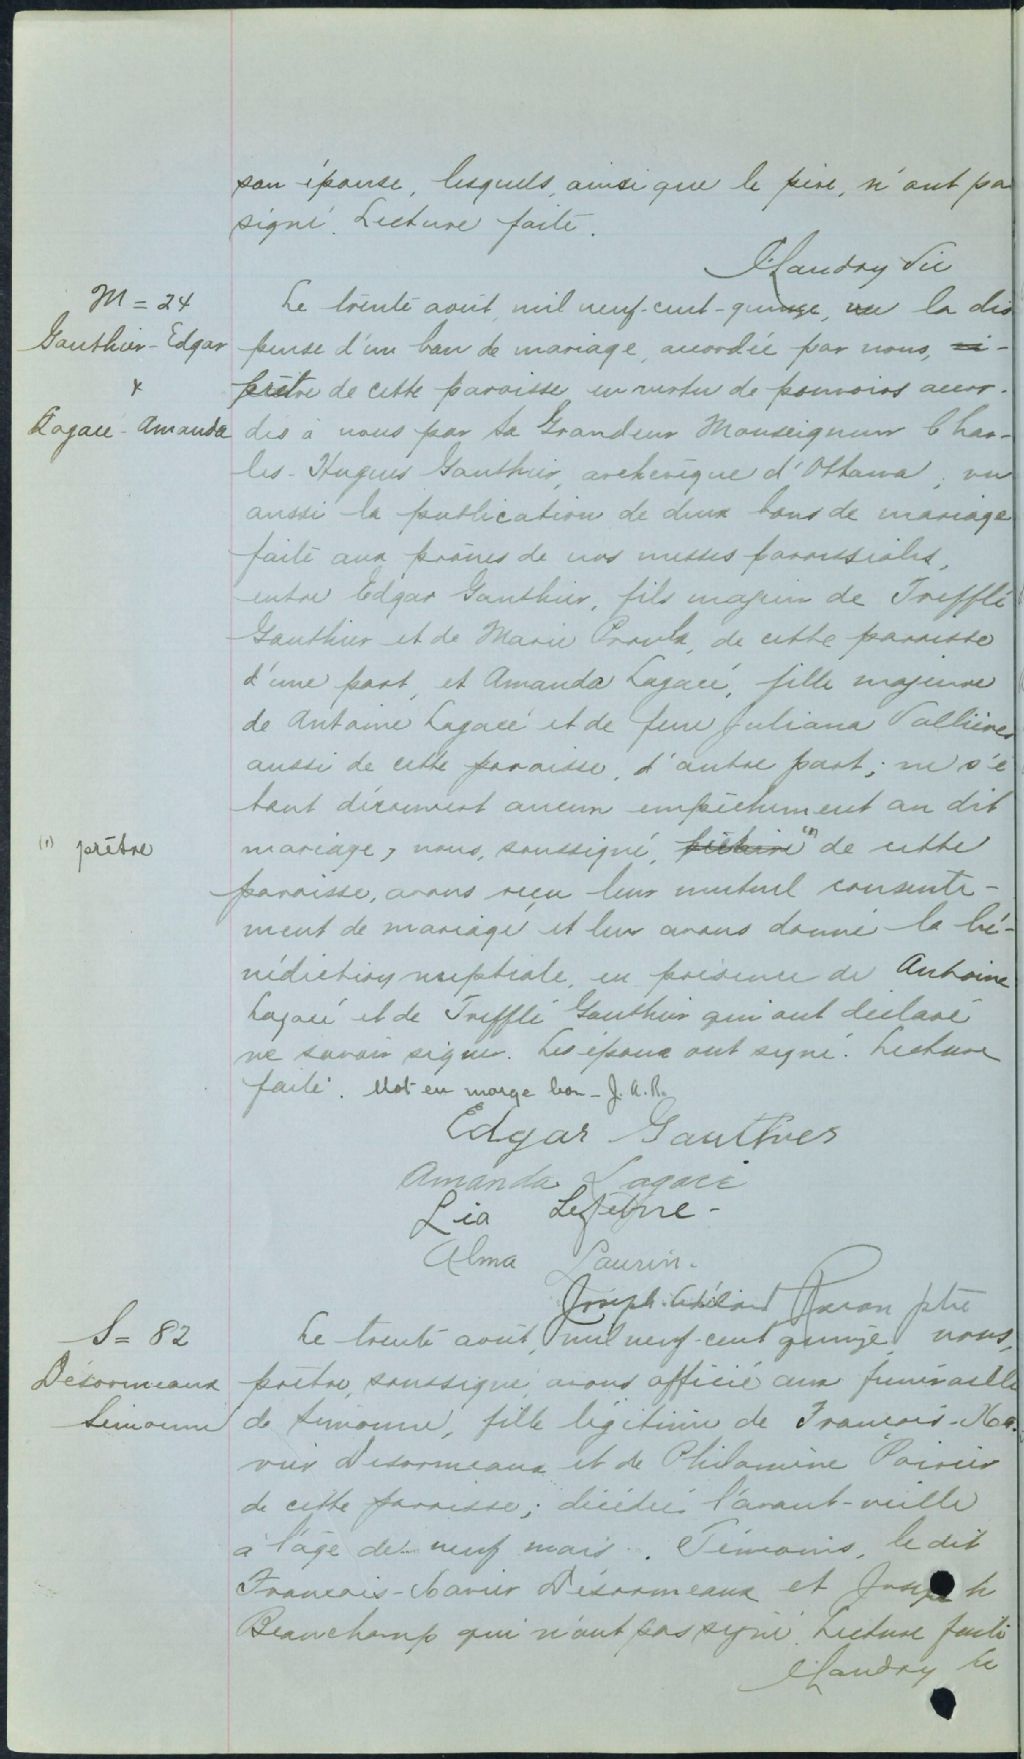 son épouse, lesquels, ainsi que le père, n'ont pa
signé. Lecture faite.
Landry Vic
M = 24
Gauthier - Edgar
&
Lagacé - Amanda
Le trente août, mil neuf-cent-quinze, vu la dis
pense d'un ban de mariage, accordée par nous,
prêtre de cette paroisse en vertu de pouvoirs accor-
dés à nous par Sa Grandeur Monseigneur Char-
les-Hugues Gauthier, archevêque d'Ottawa, vu
aussi la publication de deux bans de mariage
faite aux prônes de nos messes paroissiales,
entre Edgar Gauthier, fils majeur de Trefflé
Gauthier et de Marie Proulx, de cette paroisse
d'une part, et Amanda Lagacé, fille majeure
de Antoine Lagacé et de feue Juliana Vallières
aussi de cette paroisse, d'autre part; ne s'é
tant découvert aucun empêchement au dit
(1) prêtre
mariage, nous, soussigné, (1) de cette
paroisse, avons reçu leur mutuel consente-
ment de mariage et leur avons donné la bé-
nédiction nuptiale, en présence de Antoine
Lagacé et de Trefflé Gauthier qui ont déclaré
ne savoir signer. Les époux ont signé. Lecture
faite. Mot en marge bon - J. A. R.
Edgar Gauthier
Amanda Lagacé
Lia Lefebvre -
Alma Laurin.
Joseph ptre
S = 82
Désormeaux
Simonne
Le trente août, mil neuf-cent quinze, nous,
prêtre, soussigné, avons officié aux funéraille
de Simonne, fille légitime de François-Xa-
vier Désormeaux et de Philomène Poirier
de cette paroisse; décédée l'avant-veille
à l'âge de neuf mois. Témoins, le dit
François-Xavier Désormeaux et Joseph
Beauchamp qui n'ont pas signé. Lecture faite
Landry